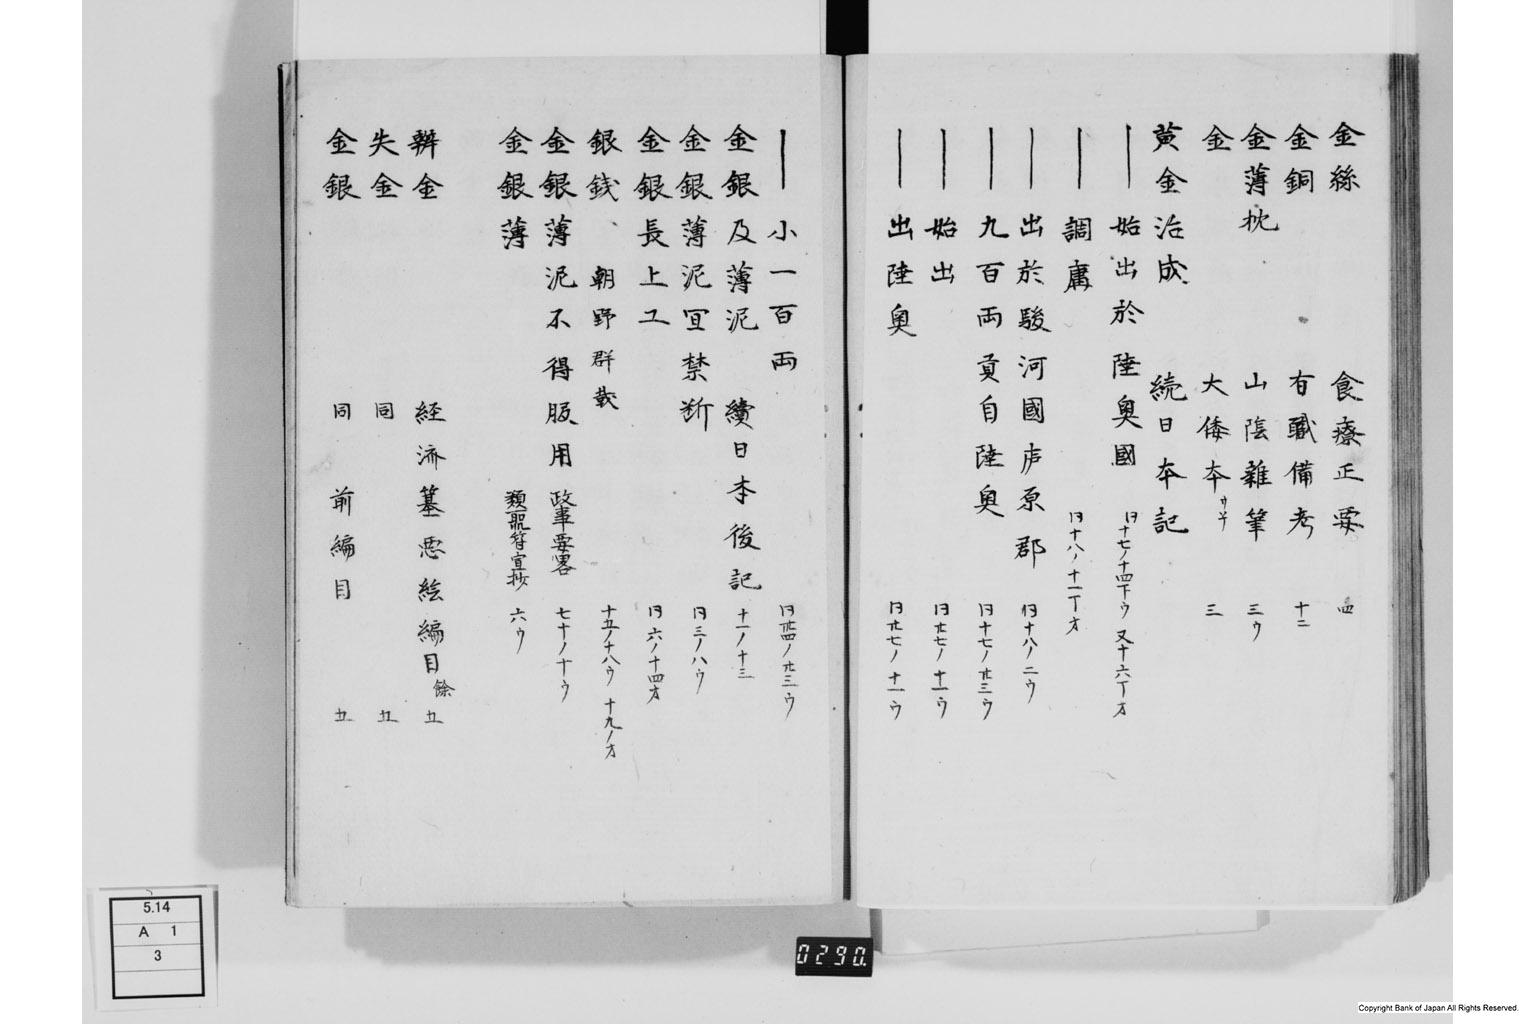 金絲 食療正要 四
金銅 有職備考 十二
金薄枕 山陰雜筆 三ウ
金 大倭本 三
黄金治成 続日本記
｜始出於陸奥國 同十七ノ十四下ウ 又十六丁オ
｜調庸 同十八ノ十一丁オ
｜出於駿河國庐原郡 同十八ノ二ウ
｜九百両貢自陸奥 同十七ノ廿三ウ
｜始出 同廿七ノ十一ウ
｜出陸奥 同廿七ノ十一ウ
｜小一百両 同廿四ノ廿三ウ
金銀及薄泥 續日本後記 十一ノ十三
金銀薄泥宜禁断 同三ノハウ
金銀長上工 同六ノ十四オ
銀銭 朝野群載 十五ノ十八ウ 十九ノオ
金銀薄泥不得服用 政事要畧 七十ノ十ウ
金銀薄 類聚符宣抄 六ウ
辨金 経済纂悪絵編目餘 五
失金 同 五
金銀 同前編目 五
0290.
5.14
A 1
3
Copyright Bank of Japan All Rights Reserved.